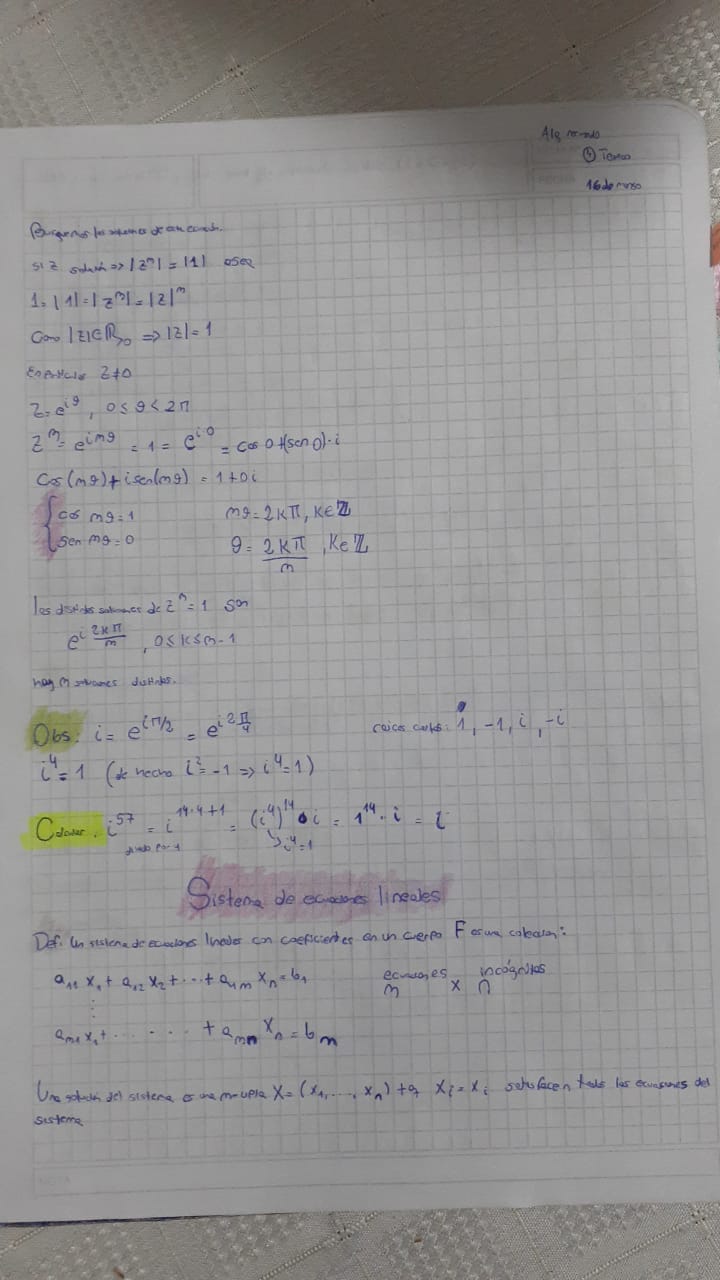 ④ Teorico
16 de marzo
Busquemos las soluciones de esta ecuación.
si z solución => |zⁿ| = |1| osea
1 = |1| = |zⁿ| = |z|ⁿ
Como |z| ∈ ℝ>0 => |z| = 1
En particular z ≠ 0
z = e^{iθ}, 0 ≤ θ < 2π
zⁿ = e^{inθ} = 1 = e^{i·0} = cos 0 + (sen 0)·i
cos(nθ) + i sen(nθ) = 1 + 0i
{ cos nθ = 1 nθ = 2kπ, k ∈ ℤ
{ sen nθ = 0 θ = 2kπ/n, k ∈ ℤ
las distintas soluciones de zⁿ = 1 son
e^{i 2kπ/n}, 0 ≤ k ≤ n-1
hay n soluciones distintas.
Obs: i = e^{iπ/2} = e^{i2π/4} raices cuartas: 1, -1, i, -i
i⁴ = 1 (de hecho i² = -1 => i⁴ = 1)
Calcular: i^{57} = i^{14·4+1} = (i⁴)^{14} • i = 1^{14} · i = i
divido por 4 ↳ i⁴ = 1
Sistema de ecuaciones lineales
Def: Un sistema de ecuaciones lineales con coeficientes en un cuerpo F es una coleccion:
a₁₁ x₁ + a₁₂ x₂ + ... + a₁ₙ xₙ = b₁ ecuaciones incógnitas
⋮ m x n
aₘ₁ x₁ + . . . . . . + aₘₙ xₙ = bₘ
Una solución del sistema es una n-upla X = (x₁, ..., xₙ) + q xᵢ = xᵢ satisfacen todas las ecuaciones del
sistema